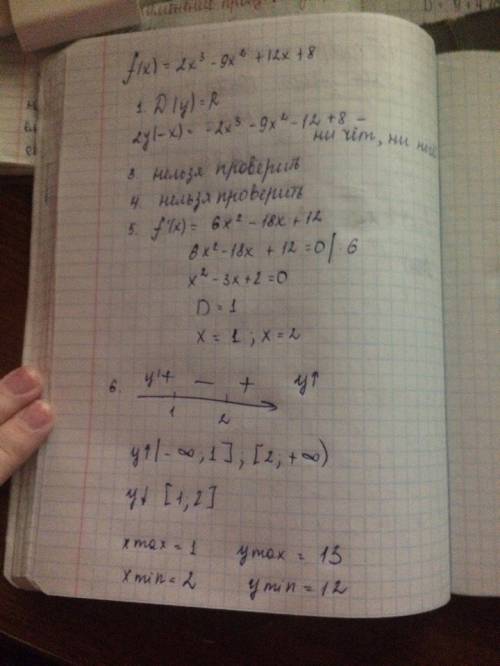 f(x) = 2x³ - 9x² + 12x + 8
1. D(y) = R
2 y(-x) = -2x³ - 9x² - 12 + 8 -
ни чёт, ни
3. нельзя проверить
4. нельзя проверить
5. f'(x) = 6x² - 18x + 12
6x² - 18x + 12 = 0 | 6
x² - 3x + 2 = 0
D = 1
x = 1 ; x = 2
6. y' + - + y↑
1 2
y↑(-∞; 1] ; [2; +∞)
y↓ [1, 2]
xmax = 1 ymax = 13
xmin = 2 ymin = 12